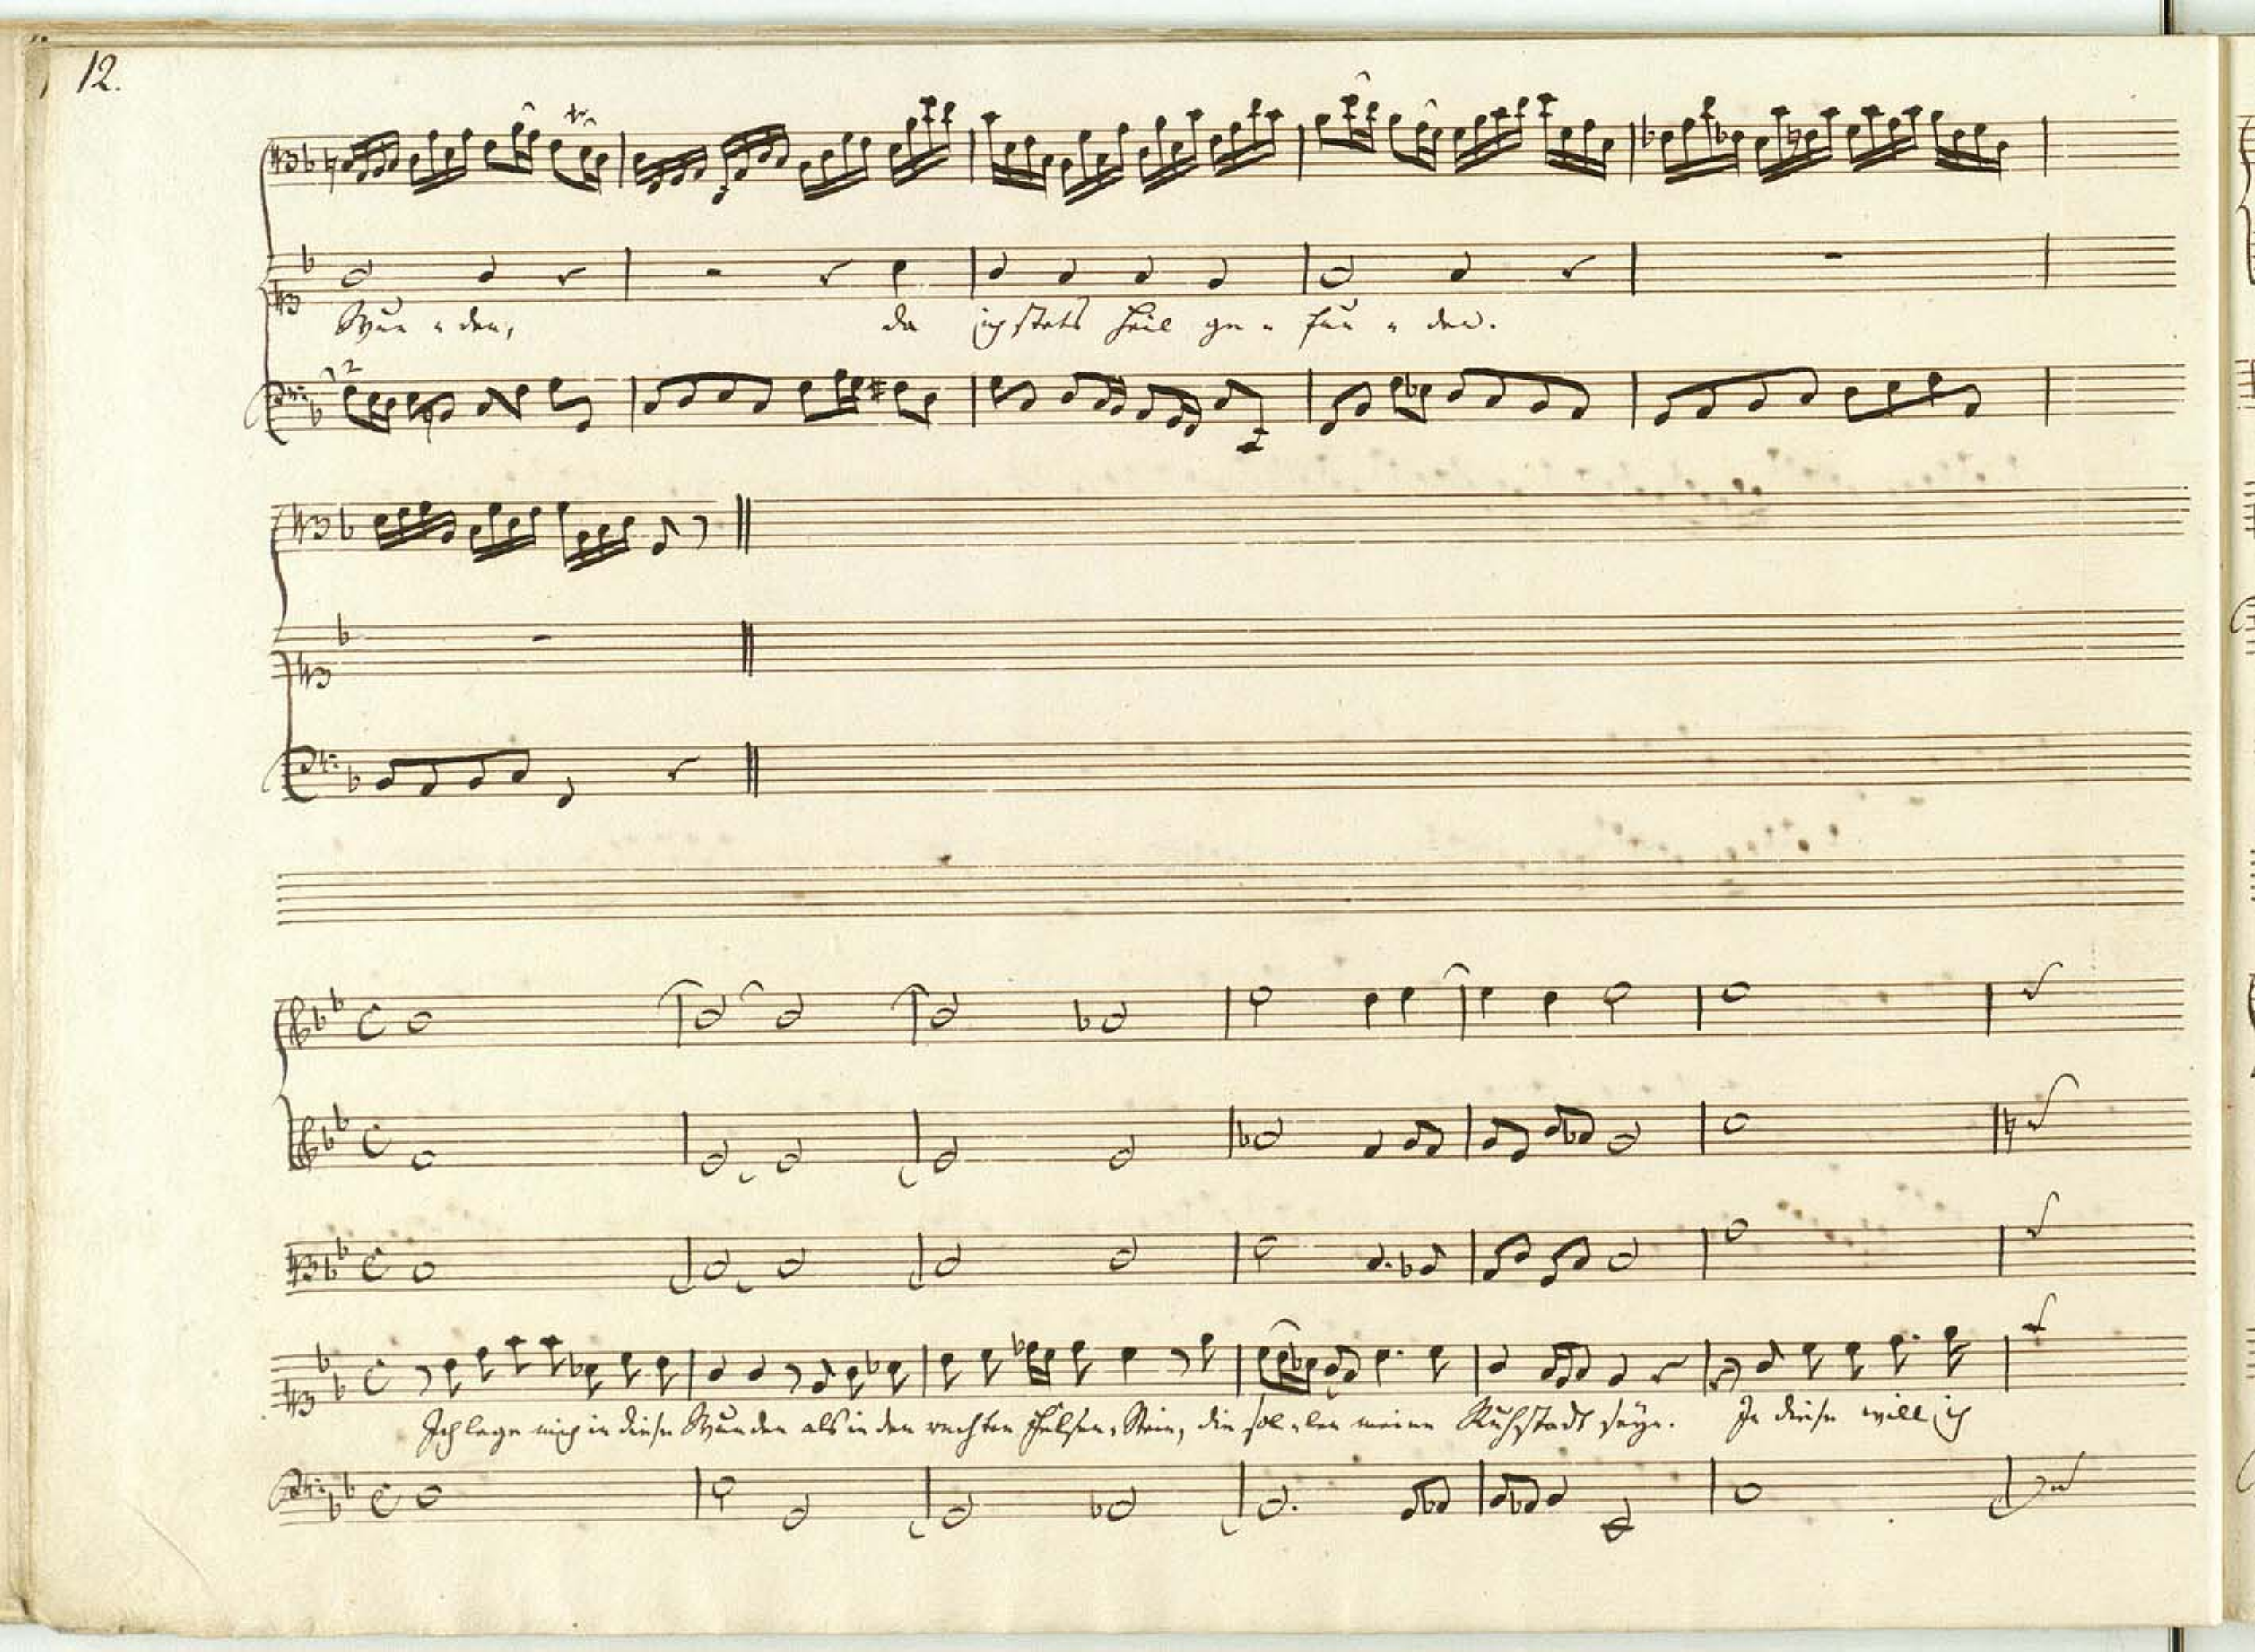 12.
tr
Wun - den, da ich stets Heil ge - fun - den.
2
Ich lege mich in diese Wunden als in den rechten Felsen-Stein, die sol-len meine Ruhstadt seyn. In diese will ich